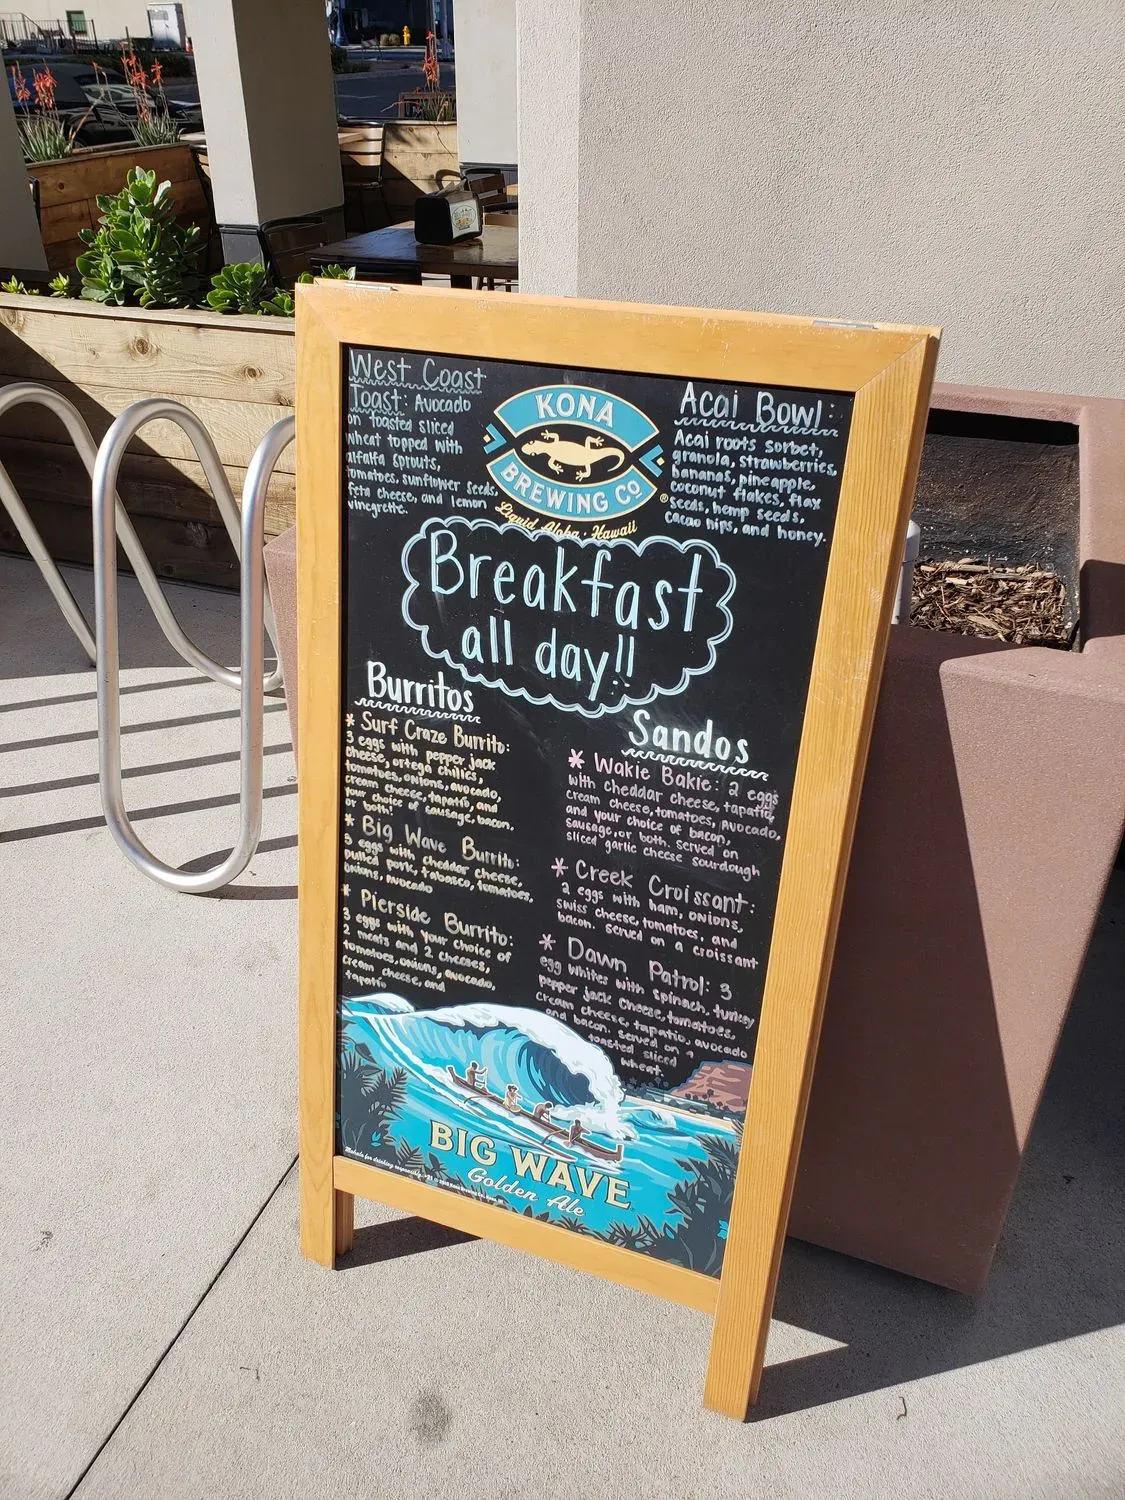 West Coast
Toast: Avocado
on toasted sliced
wheat topped with
alfalfa sprouts,
tomatoes, sunflower seeds,
feta cheese, and lemon
vinegrette.
KONA
BREWING CO
®
Liquid Aloha · Hawaii
Acai Bowl:
Acai roots sorbet,
granola, strawberries,
bananas, pineapple,
coconut flakes, flax
seeds, hemp seeds,
cacao nips, and honey.
Breakfast
all day!!
Burritos
* Surf Craze Burrito:
3 eggs with pepper jack
cheese, ortega chilies,
tomatoes, onions, avocado,
cream cheese, tapatio, and
your choice of sausage, bacon,
or both!
* Big Wave Burrito:
3 eggs with cheddar cheese,
pulled pork, tabasco, tomatoes,
onions, avocado
* Pierside Burrito:
3 eggs with your choice of
2 meats and 2 cheeses,
tomatoes, onions, avocado,
cream cheese, and
tapatio
Sandos
* Wakie Bakie: 2 eggs
with cheddar cheese, tapatio,
cream cheese, tomatoes, avocado,
and your choice of bacon,
sausage, or both. served on
sliced garlic cheese sourdough
* Creek Croissant:
2 eggs with ham, onions,
swiss cheese, tomatoes, and
bacon. served on a croissant
* Dawn Patrol: 3
egg whites with spinach, turkey
pepper jack cheese, tomatoes,
cream cheese, tapatio, avocado
and bacon. served on
toasted sliced
wheat.
BIG WAVE
Golden Ale